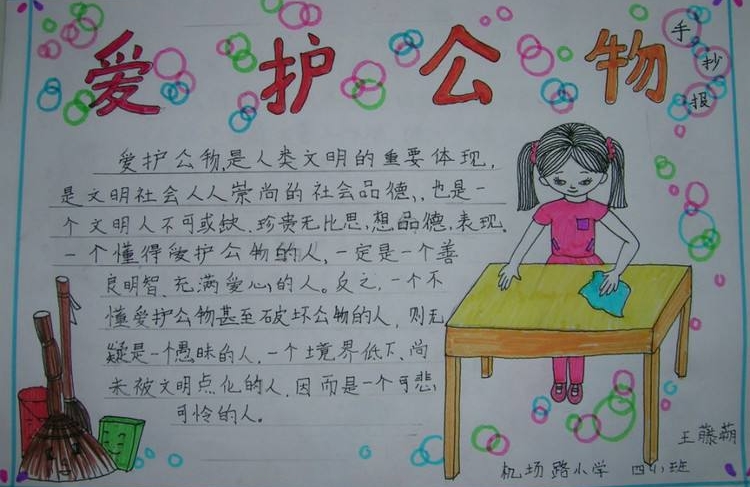 爱护公物
手抄报
爱护公物,是人类文明的重要体现,
是文明社会人人崇尚的社会品德,、也是一
个文明人不可或缺、珍贵无比思,想品德,表现。
一个懂得爱护公物的人,一定是一个善
良明智、充满爱心的人。反之,一个不
懂爱护公物甚至破坏公物的人,则无
疑是一个愚昧的人,一个境界低下、尚
未被文明点化的人,因而是一个可悲
可怜的人。
王藤蒴
机场路小学 四小班